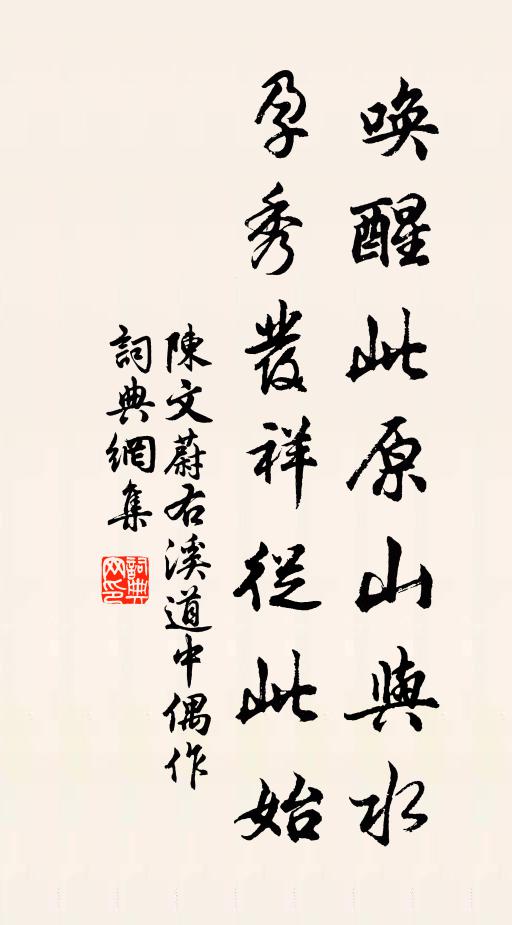 喚醒此原山與水
孕秀發祥從此始
陳文蔚右溪道中偶作
詞典網集
詞典网印